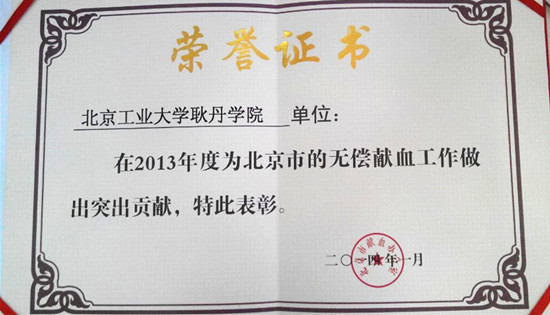 荣誉证书
北京工业大学耿丹学院 单位：
在2013年度为北京市的无偿献血工作做
出突出贡献，特此表彰。
二〇一四年一月